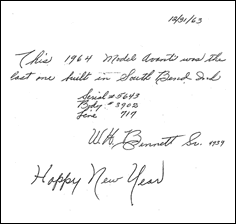 12/31/63
This 1964 Model Avanti was the
last one built in South Bend Ind
Serial # 5643
Body # 3902
Line 717
WH Bennett Sr. 0939
Happy New Year